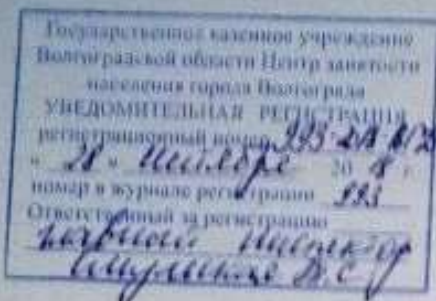 Государственное казенное учреждение
Волгоградской области Центр занятости
населения города Волгограда
УВЕДОМИТЕЛЬНАЯ РЕГИСТРАЦИЯ
регистрационный номер 993-
« 28 » 20 18 г.
номер в журнале регистрации 993
Ответственный за регистрацию
главный инспектор